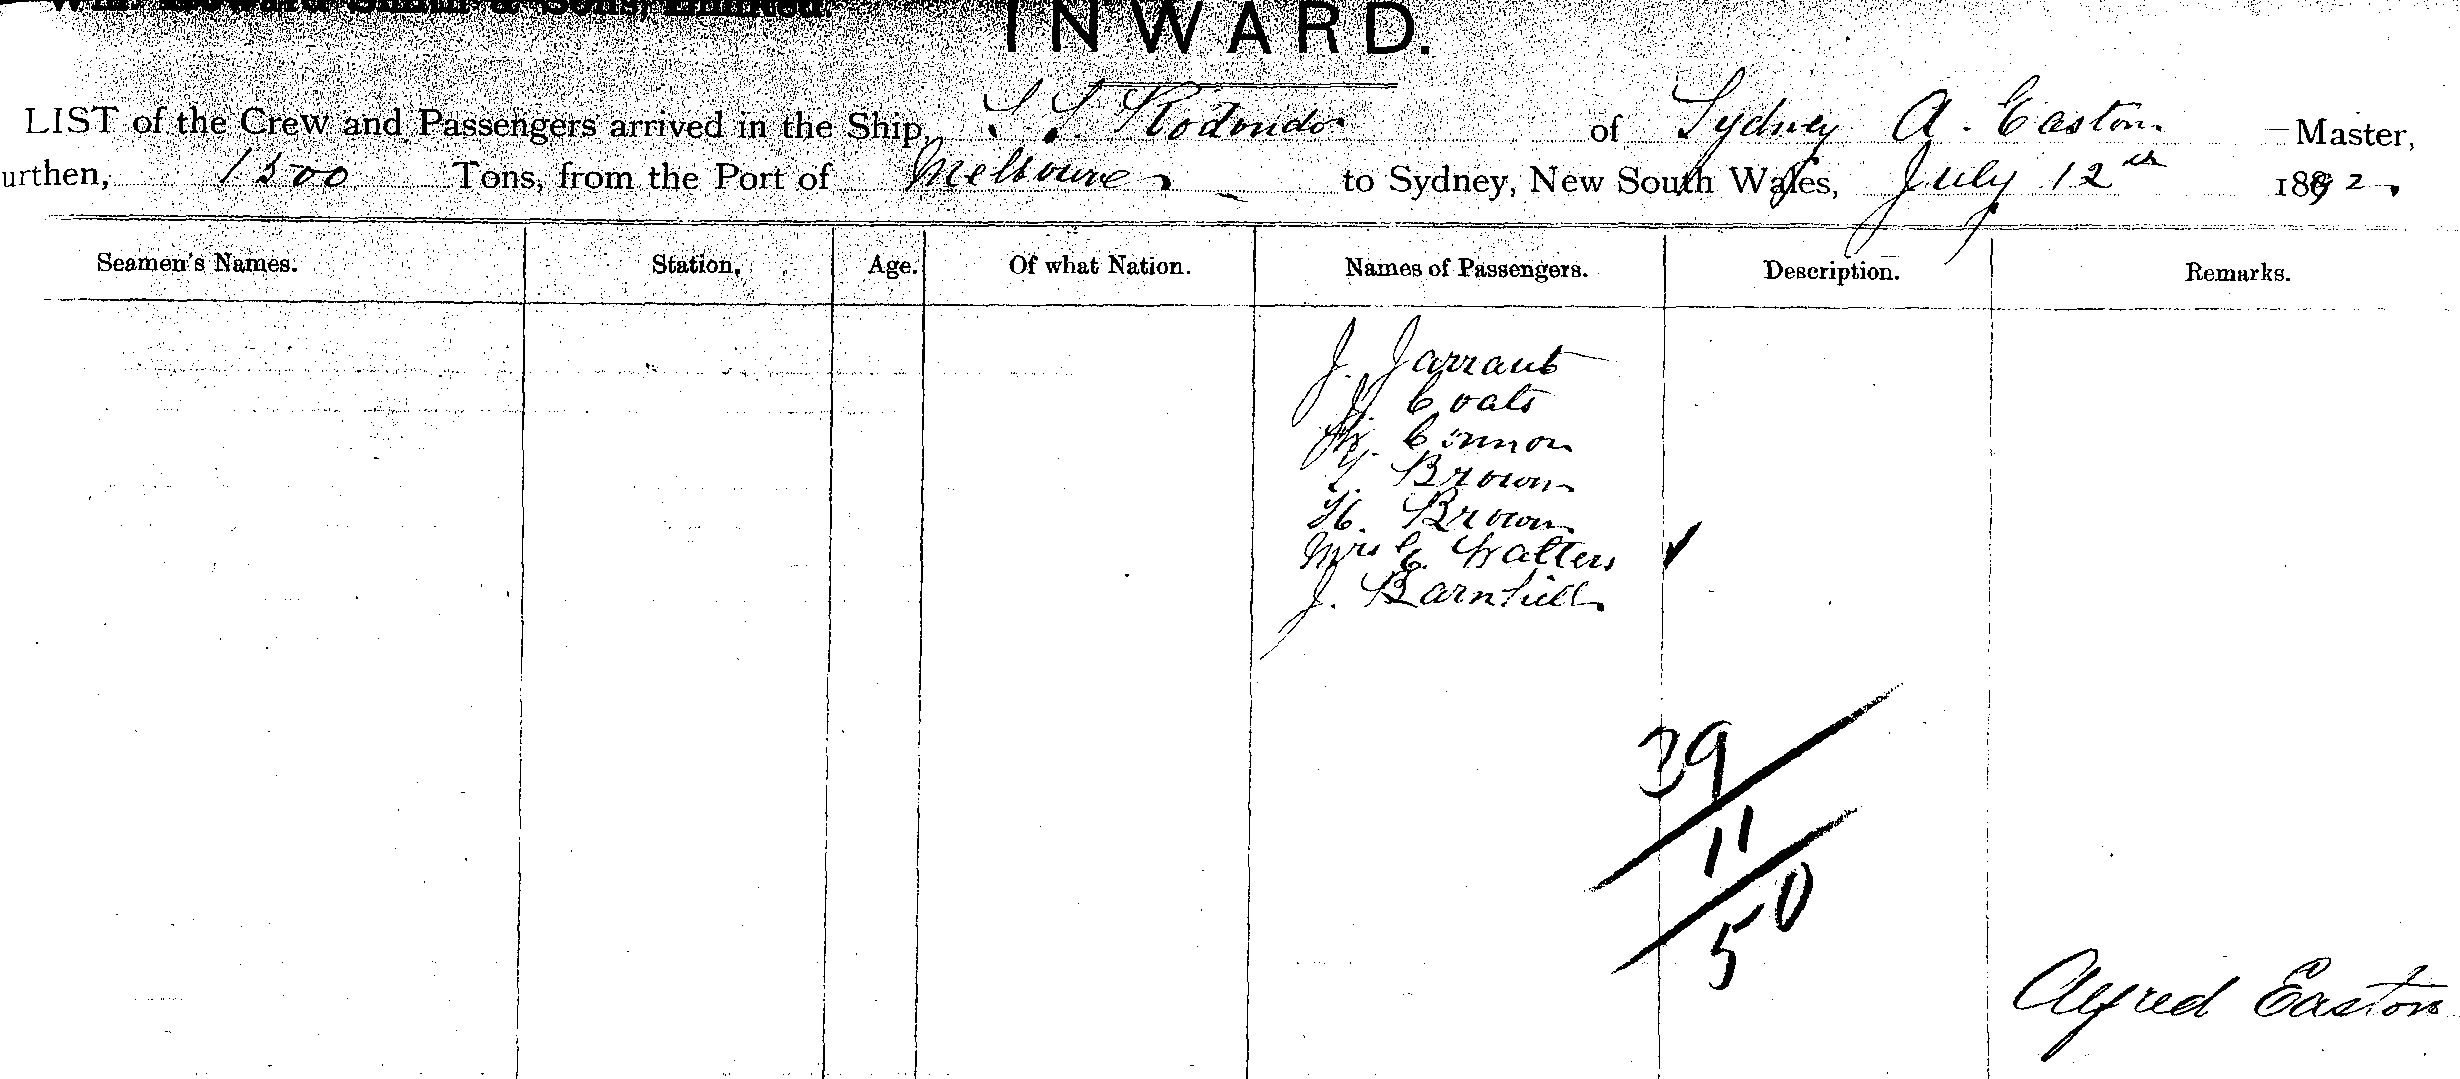 Wm. Howard Smith & Sons, Limited
INWARD.
LIST of the Crew and Passengers arrived in the Ship, S. S. Rodondo of Sydney A. Easton Master,
urthen, 1500 Tons, from the Port of Melbourne to Sydney, New South Wales, July 12th 1892.
Seamen's Names. Station, Age. Of what Nation. Names of Passengers. Description. Remarks.
J. Jarraut
J. Coats
Connon
Brown
H. Brown
Mrs C. Walters ✓
J. Barnhill
39
11
50
Alfred Easton